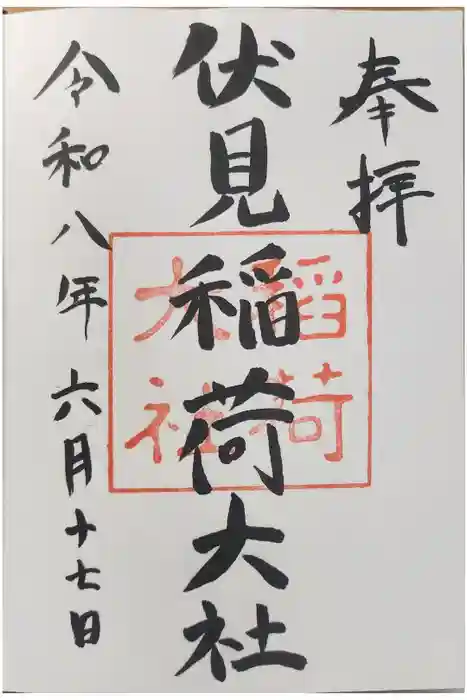 奉拝
伏見稲荷大社
稲荷
大社
令和八年六月十七日